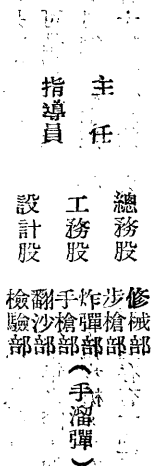 主任
指導員
總務股
工務股
設計股
修械部
步槍部
炸彈部（手溜彈）
手槍部
翻沙部
檢驗部